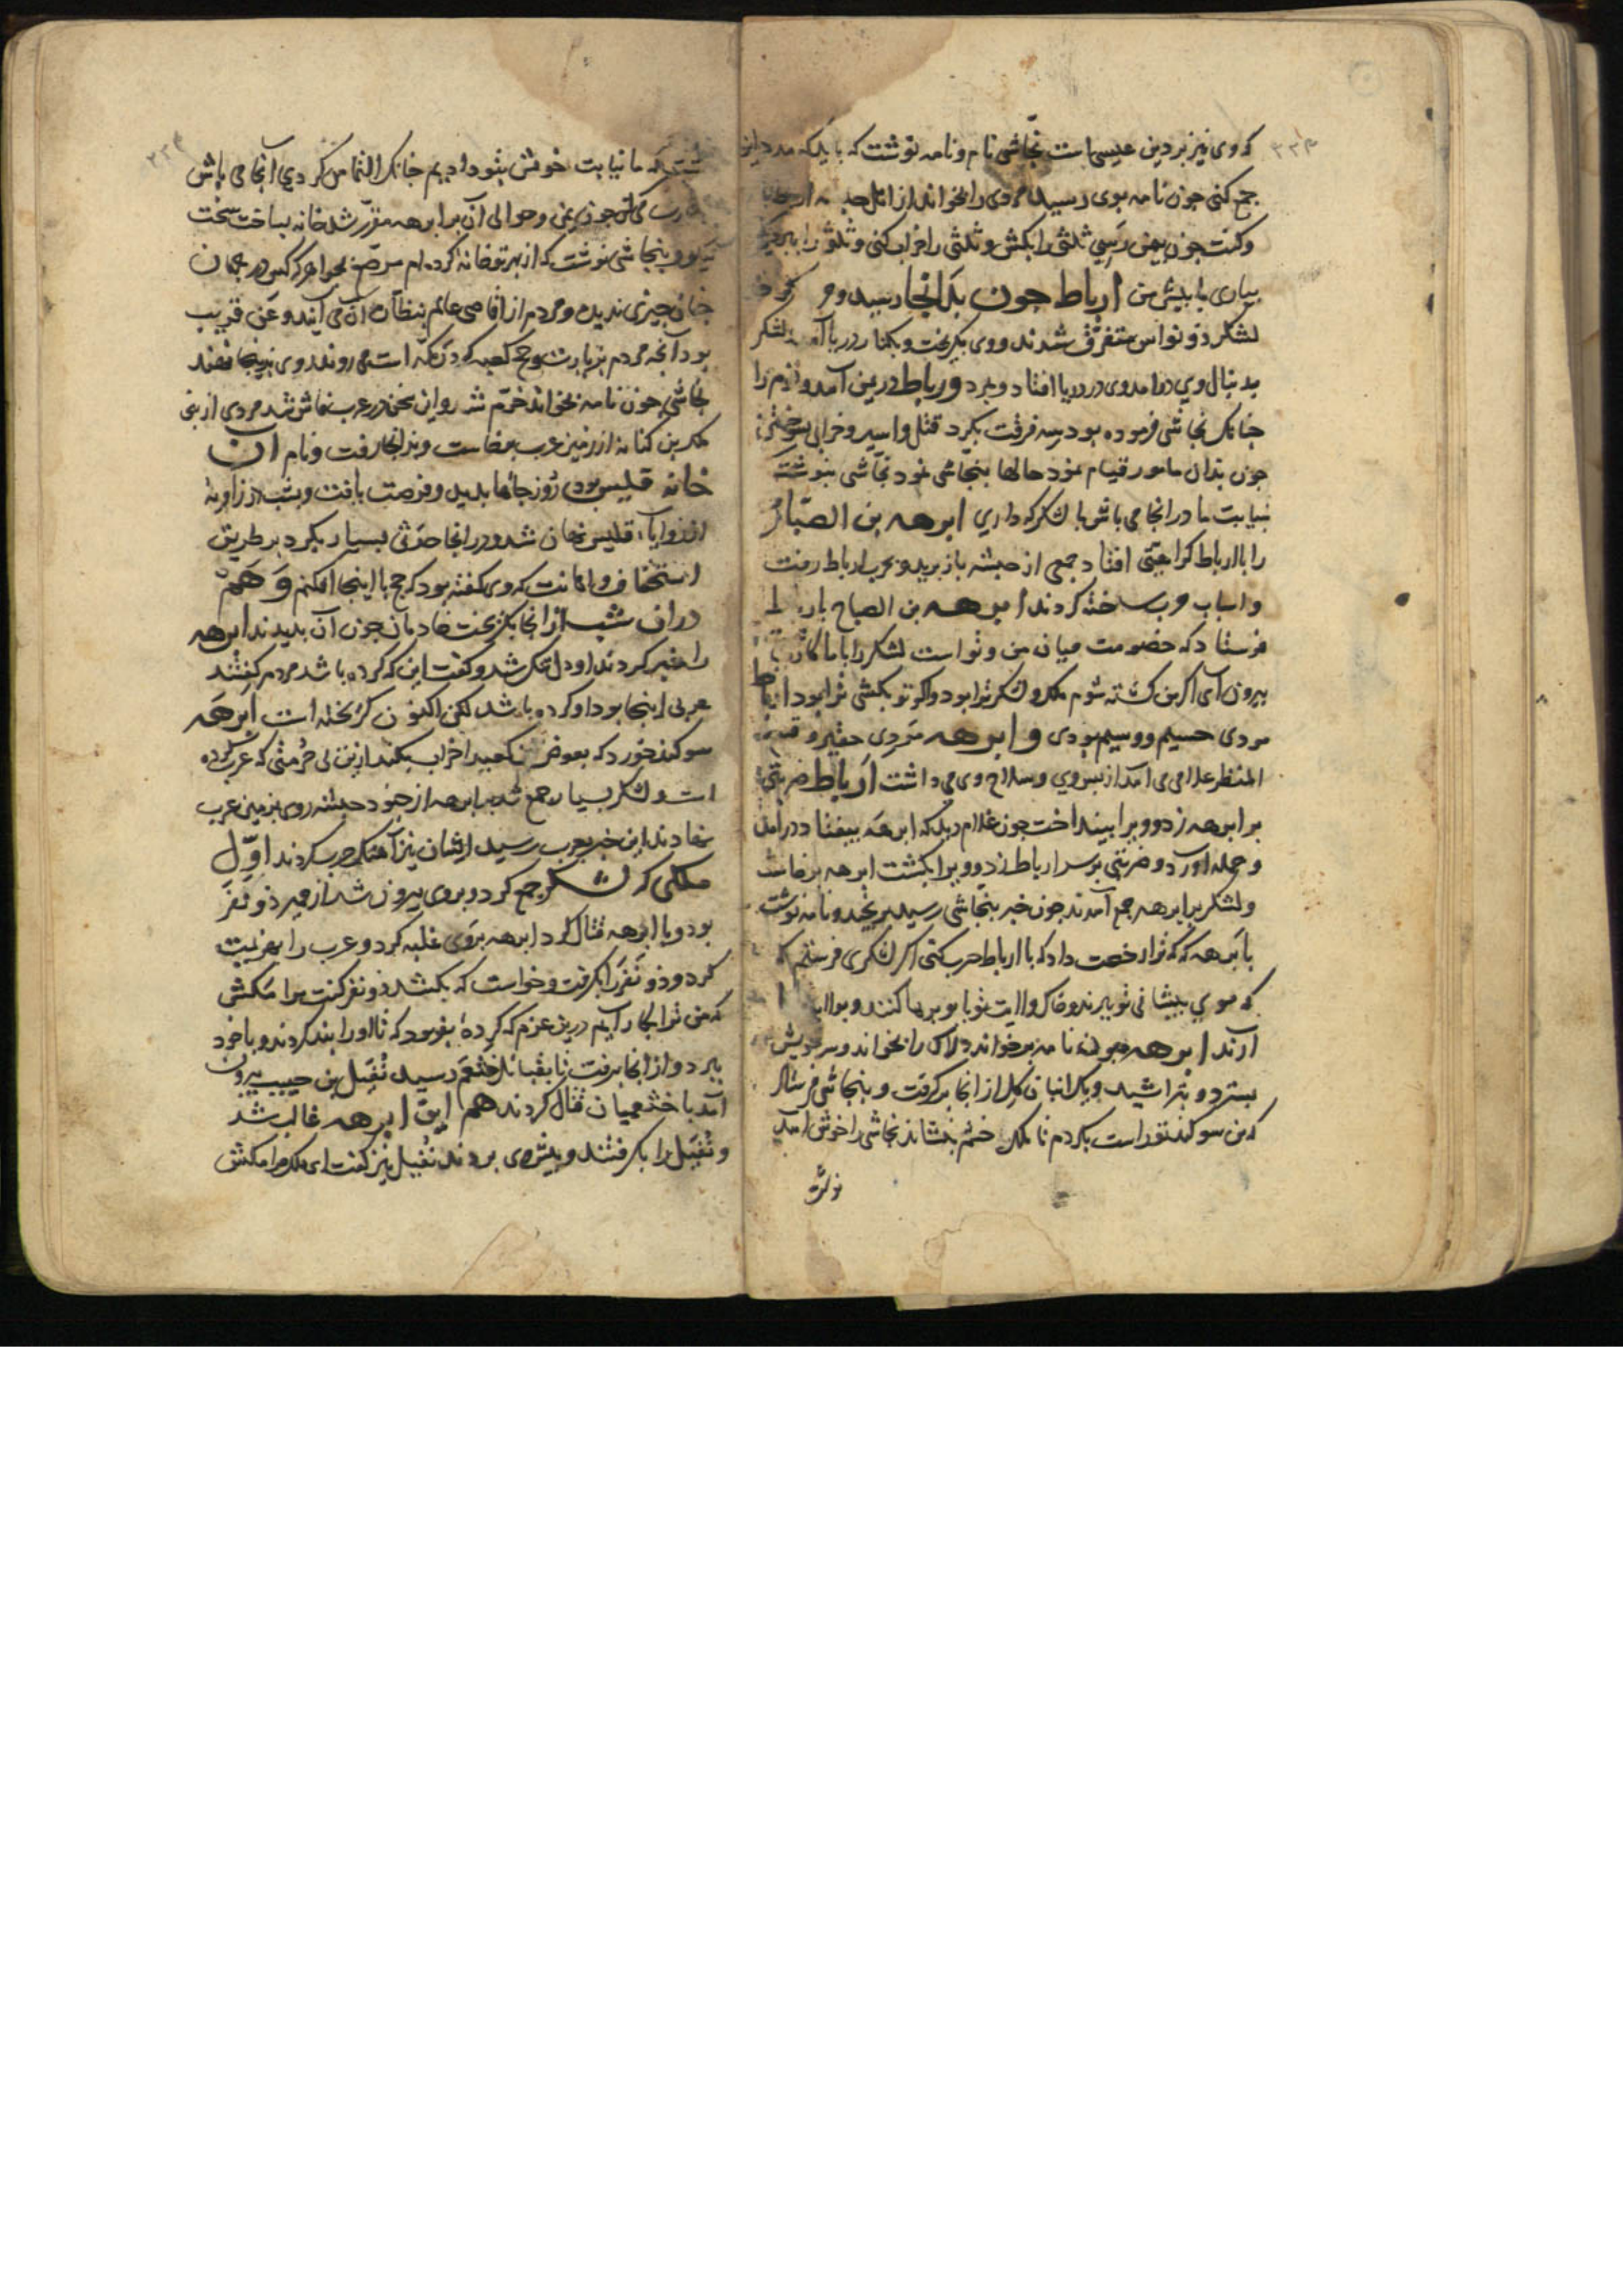 که وی نیز بر دین عیسی است نجاشی نام و نامه نوشت که باید که مدد این
جمع کنی چون نامه بوی رسید مردی را بخواند از اهل
و کفت چون بیمن رسی ثلثی را بکش و ثلثی را خراب کنی و ثلثی را ببر
بیاری با پیش من ارباط چون بدانجا رسید و
لشکر ذو نواس متفرق شدند و وی بکریخت و بکنار دریا آمد لشکر
بدنبال وی درآمد وی در دریا افتاد و بمرد و ارباط در یمن آمد و مردم را
چنانک نجاشی فرموده بود سه فرقت بکرد قتل و اسیر و خرابی
چون بدان مامور قیام نمود حالها بنجاشی نمود نجاشی بنوشت
بنیابت ما در انجا می باش با لشکر که داری ابرهه بن الصباح
را با ارباط کراهیتی افتاد جمعی از حبشه باز برید و بحرب ارباط رفت
و اسباب حرب ساخته کردند ابرهه بن الصباح
فرستاد که خصومت میان من و تو است لشکر را با ما کار
بیرون آی اکر من کشته شوم ملک و لشکر ترا بود و اکر تو بکشی ترا بود ارباط
مردی جسیم و وسیم بودی و ابرهه مردی حقیر و
المنظر غلامی می آمد از پس وی و سلاح وی می داشت ارباط ضربتی
بر ابرهه زد و ویرا بینداخت چون غلام دید که ابرهه بیفتاد درآمد
و حمله آورد و ضربتی بر سر ارباط زد و ویرا بکشت ابرهه برخاست
و لشکر بر ابرهه جمع آمدند چون خبر بنجاشی رسید برنجید و نامه نوشت
بابرهه که که ترا رخصت داد که با ارباط حرب کنی اکر لشکری فرستم که
که موی پیشانی تو ببرند و خاک ولایت تو با توبرها کنند و
آرند ابرهه چون نامه برخواند دلاک را بخواند و سر خویش
بسترد و بتراشید و یک انبان کل از انجا برکرفت و بنجاشی فرستاد
که من سوکند تو راست بکردم تا ملک خشم بنشاند نجاشی را خوش آمد
نوشت
که ما نیابت خویش بتو دادیم چنانک التماس کردی آنجا می باش
چون یمن و حوالی آن بر ابرهه مقرر شد خانه بساخت سخت
نیکو و بنجاشی نوشت که از بهر تو خانه کرده ام مرصع بجواهر که کس در جهان
چنان چیزی ندیده و مردم از اقاصی عالم بنظاره آن می آیند و عن قریب
بود آنچه مردم بزیارت و حج کعبه که در مکه است می روند روی بدینجا نهند
نجاشی چون نامه بخواند خرم شد و این سخن در عرب فاش شد مردی از بنی
ملک بن کنانه از زمین عرب برخاست و بدانجا رفت و نام آن
خانه قلیس بود روز جائها بدید و فرصت یافت و بشب در زاویه
از زوایاء قلیس نهان شد و در انجا حدثی بسیار بکرد بر طریق
استخفاف و اهانت که وی کفته بود که حج با اینجا افکنم و هم
در آن شب از انجا بکریخت خادمان چون آن بدیدند ابرهه
را خبر کردند او دل تنک شد و کفت این که کرده باشد مردم کفتند
عربی اینجا بود او کرده باشد لکن اکنون کریخته است ابرهه
سوکند خورد که بعوض کعبه را خراب بکند از بن بی حرمتی که عرب کرده
است و لشکر بسیار جمع شد بر ابرهه از جنود حبشه روی بزمین عرب
نهادند این خبر بعرب رسید ایشان نیز آهنک حرب کردند اول
ملکی که لشکر جمع کرد و بروی بیرون شد از حمیر ذو نفر
بود و با ابرهه قتال کرد ابرهه بروی غلبه کرد و عرب را بهزیمت
کرد و ذو نفر را بکرفت و خواست که بکشد ذو نفر کفت مرا مکش
که من ترا بکار آیم درین عزم که کردهٔ بفرمود که تا او را بند کردند و با خود
ببرد و از انجا برفت تا بقبائل خثعم رسید نفیل بن حبیب بیرون
آمد با خثعمیان قتال کردند هم این ابرهه غالب شد
و نفیل را بکرفتند و پیش وی بردند نفیل نیز کفت ای ملک مرا مکش